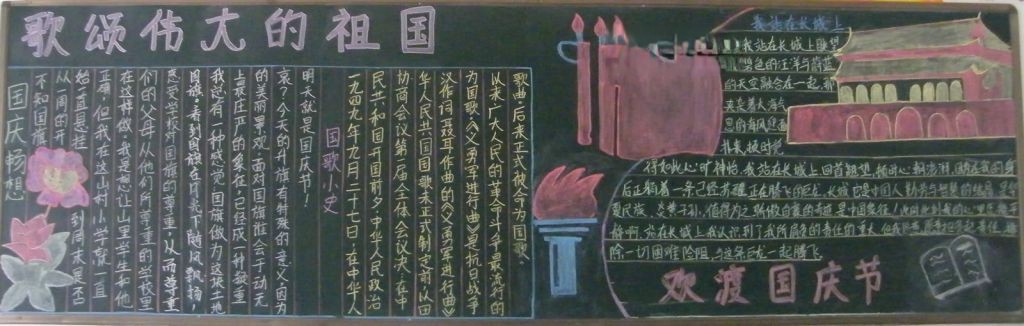 歌颂伟大的祖国
国庆畅想
不知国旗
从一周的开
始一直悬挂到周末是否
正确,但我在这山村小学就一直
在这样做,我是想让山里学生和他
们的父母从他们所尊重的学校里
感受学校对国旗的尊重,从而尊重
国旗。看到国旗在阳光下随风飘扬,
我总有一种感觉:国旗做为这块土地
上最庄严的象征,已经成一种敬重
的美丽景观。面对国旗谁会于动无
衷?今天的升旗有特殊的意义,因为
明天就是国庆节!
国歌小史
一九四九年九月二十七日,在中华人
民共和国开国前夕中华人民政治
协商会议第一届全体会议决,在中
华人民共和国国歌未正式制定前,以田
汉作词聂耳作曲的《义勇军进行曲》
为国歌。《义勇军进行曲》是抗日战争
以来广大人民的革命斗争最流行的
歌曲,后来正式被命为国歌。
我站在长城上
我站在长城上眺望
色的汪洋与蔚蓝
的天空融合在一起,那
海风迎面
得如此心旷神怡,我站在长城上,回首眺望,
后正躺着一条已经苏醒正在腾飞的巨龙,长城
炎黄子孙,值得为之骄傲自豪的奇迹,是中国象征!
站在长城上我认识到了我所肩负的责任的重大,
除一切困难险阻,与这条巨龙一起腾飞
欢渡国庆节